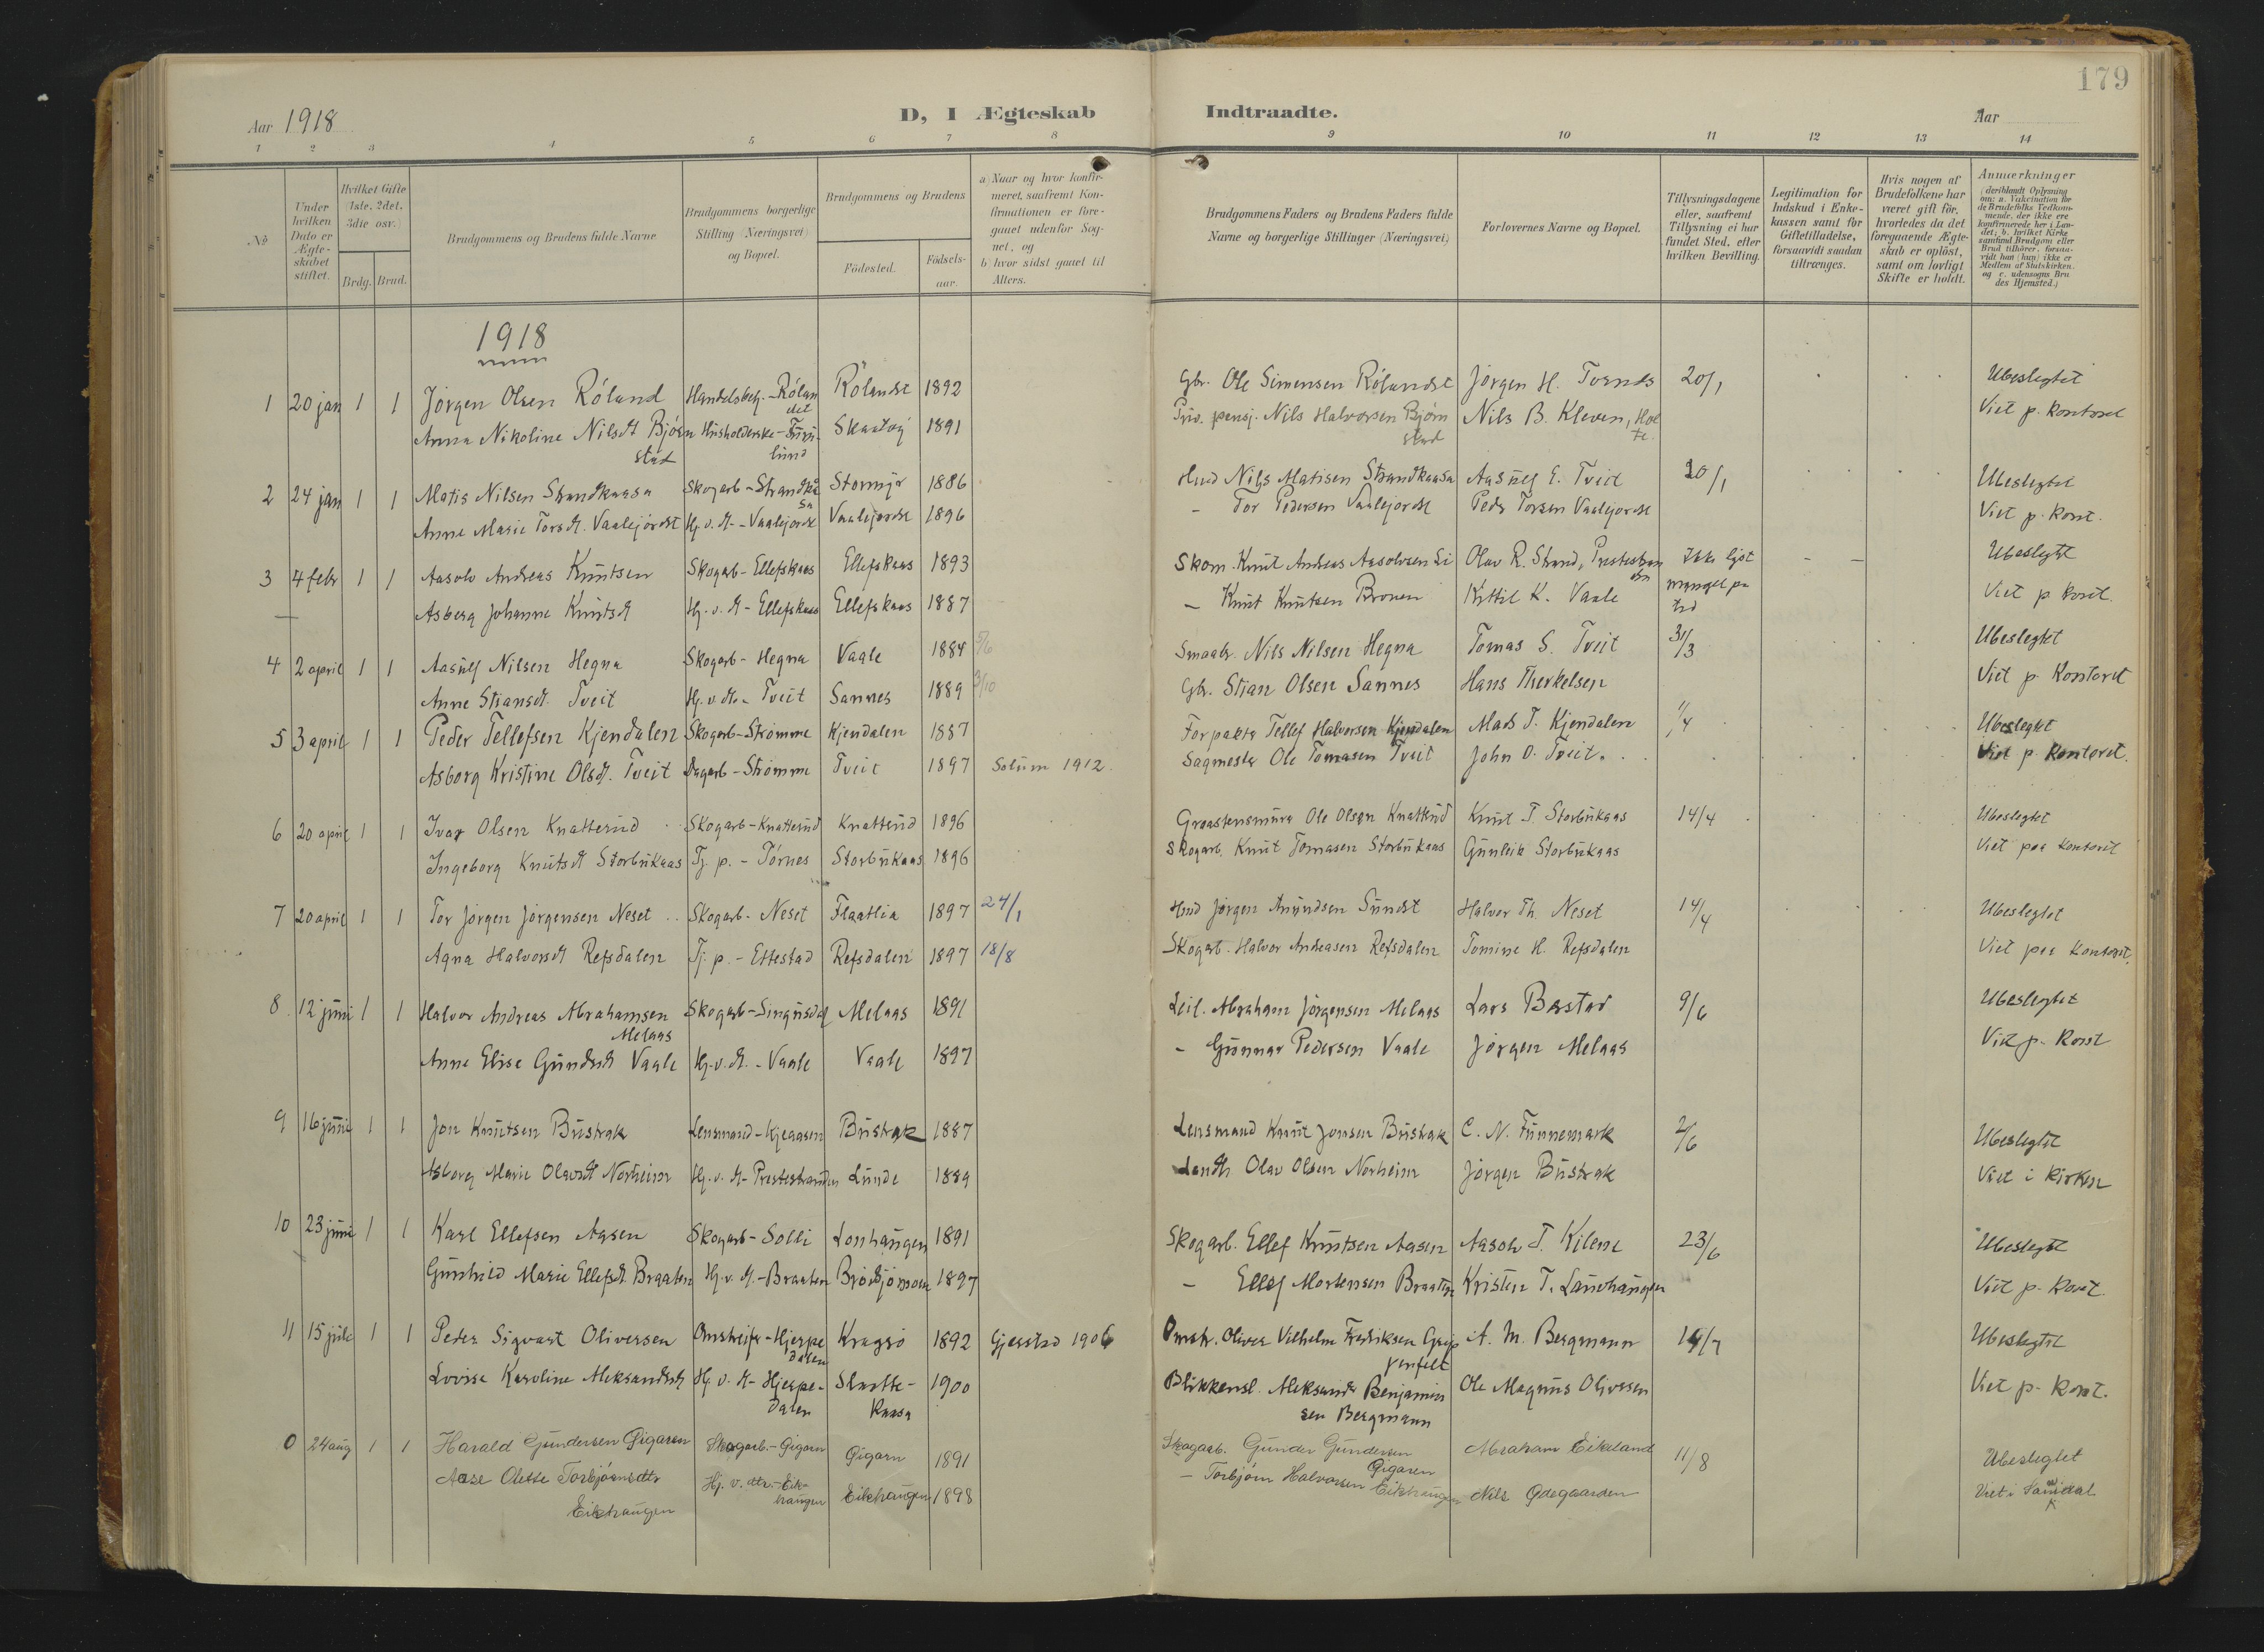 179
Aar 1918
D, I Ægteskab Indtraadte.
Aar
1 2 3 4 5 6 7 8 9 10 11 12 13 14
No
Under hvilken Dato er Ægteskabet stiftet.
Hvilket Gifte (1ste, 2det, 3die osv.)
Brdg. Brud.
Brudgommens og Brudens fulde Navne
Brudgommens borgerlige Stilling (Næringsvei) og Bopæl.
Brudgommens og Brudens
Födested.
Födselsaar.
a) Naar og hvor konfirmeret, saafremt Konfirmationen er foregaaet udenfor Sognet, og
b) hvor sidst gaaet til Alters.
Brudgommens Faders og Brudens Faders fulde Navne og borgerlige Stillinger (Næringsvei)
Forlovernes Navne og Bopæl.
Tillysningsdagene eller, saafremt Tillysning ei har fundet Sted, efter hvilken Bevilling.
Legitimation for Indskud i Enkekassen samt for Giftetilladelse, forsaavidt saadan tiltrænges.
Hvis nogen af Brudefolkene har været gift för, hvorledes da det foregaaende Ægteskab er oplöst, samt om lovligt Skifte er holdt.
Anmærkninger
(deriblandt Oplysning om: a. Vakcination for de Brudefolks Vedkommende, der ikke ere konfirmerede her i Landet; b. hvilket Kirkesamfund Brudgom eller Brud tilhörer, forsaavidt han (hun) ikke er Medlem af Statskirken, og c. udensogns Brudes Hjemsted.)
1918
1 20 jan 1 1 Jörgen Olsen Röland Handelsbetj.-Rölandet Rölandet 1892 Gbr. Ole Simensen Rölandet Jörgen H. Tvends 20/1 Ubeslegtet
Anna Nikoline Nilsdt Björnstad Husholderske - Furulund Skaatöy 1891 Priv. pensj. Nils Halvorsen Björnstad Nils B. Kleven, Holte Viet p. Kontoret
2 24 jan 1 1 Matis Nilsen Strandkaasa Skogarb - Strandkåsa Stormyr 1886 Husd Nils Matisen Strandkaasa Aasulf E. Tveit 20/1 Ubeslegtet
Anne Marie Torsdt. Vaalejordet Hj. v. M. - Vaalejordet Vaalejordet 1896 - Tor Pedersen Vaalejordet Peder Torsen Vaalejordet Viet p. Kont.
3 4 febr 1 1 Aasolv Andreas Knutsen Skogarb - Ellefskaas Ellefskaas 1893 Skom. Knut Andreas Aasolvsen Li Olav R. Strand, Prestestranden Ikke lyst - - Ubeslegtet
Asberg Johanne Knutsdt Hj. v. M - Ellefskaas Ellefskaas 1887 - Knut Knutsen Bronen Kittil K. Vaale mangel pa tid Viet p. Kont.
4 2 april 1 1 Aasulf Nilsen Hegna Skogarb - Hegna Vaale 1884 5/6 Smaabr. Nils Nilsen Hegna Tomas S. Tveit 31/3 Ubeslegtet
Anne Stiansdt. Tveit Hj. v. M. - Tveit Sannes 1889 3/10 Gbr. Stian Olsen Sannes Hans Therkelsen Viet p. Kontoret
5 3 april 1 1 Peder Tellefsen Kjendalen Skogarb - Strömme Kjendalen 1887 Forpakter Tellef Halvorsen Kjendalen Mads T. Kjendalen 1/4 Ubeslegtet
Asborg Kristine Olsdt. Tveit Dagarb - Strömme Tveit 1897 Solum 1912. Sagmester Ole Tomasen Tveit John O. Tveit. Viet p. Kontoret.
6 20 april 1 1 Ivar Olsen Knatterud Skogarb - Knatterud Knatterud 1896 Graastensmurer Ole Olsen Knatterud Knut T. Storbukaas 14/4 Ubeslegtet
Ingeborg Knutsdt Storbukaas Tj. p. - Törnes Storbukaas 1896 Skogarb. Knut Tomasen Storbukaas Gunleik Storbukaas Viet paa kontoret
7 20 april 1 1 Tor Jörgen Jörgensen Neset Skogarb - Neset Flaatlia 1897 24/1 Husd Jörgen Anundsen Sundet Halvor Th. Neset 14/4 Ubeslegtet
Agna Halvorsdt Refsdalen Tj. p. - Ettestad Refsdalen 1897 18/8 Skogarb. Halvor Andreasen Refsdalen Tomine H. Refsdalen Viet paa kontoret.
8 12 juni 1 1 Halvor Andreas Abrahamsen Melaas Skogarb - Singusdal Melaas 1891 Leil. Abraham Jörgensen Melaas Lars Barstad 9/6 Ubeslegtet
Anne Elise Gundersdt Vaale Hj. v. M. - Vaale Vaale 1897 - Gunnar Pedersen Vaale Jörgen Melaas Viet p. Kont
9 16 juni 1 1 Jon Knutsen Bustrak Lensmand - Kjeaasen Bustrak 1887 Lensmand Knut Jonsen Bustrak C. N. Funnemark 2/6 Ubeslegtet
Asborg Marie Olavsdt Norheim Hj. v. M - Prestestranden Lunde 1889 Landh. Olav Olsen Norheim Jörgen Bustrak Viet i kirken
10 23 juni 1 1 Karl Ellefsen Aasen Skogarb - Solli Lonhaugen 1891 Skogarb. Ellef Knutsen Aasen Aasolv T. Kilene 23/6 Ubeslegtet
Gunhild Marie Ellefsdt. Braaten Hj. v. M. - Braaten 1897 - Ellef Mortensen Braaten Kristen T. Landhaugen Viet p. Kont.
11 15 juli 1 1 Peder Sigvart Oliversen Omstreifer - Hjerpedalen Kragerö 1892 Gjerstad 1906 Omstr. Oliver Vilhelm Fredriksen Grippenfelt A. M. Bergmann 14/7 Ubeslegtet
Lovise Karoline Aleksandersdt Hj. v. M - Hjerpedalen Slaattekaasa 1900 Blikkensl. Aleksander Benjaminsen Bergmann Ole Magnus Oliversen Viet p. Kont.
0 24 aug 1 1 Harald Gundersen Gigaren Skogarb. - Gigarn Gigarn 1891 Skogarb. Gunder Gundersen Gigaren Abraham Eikeland 11/8 Ubeslegtet
Aase Olette Torbjörnsdtr Eikhaugen Hj. v. dtr. - Eikhaugen Eikhaugen 1898 - Torbjörn Halvorsen Eikhaugen Nils Ødegaarden Viet i